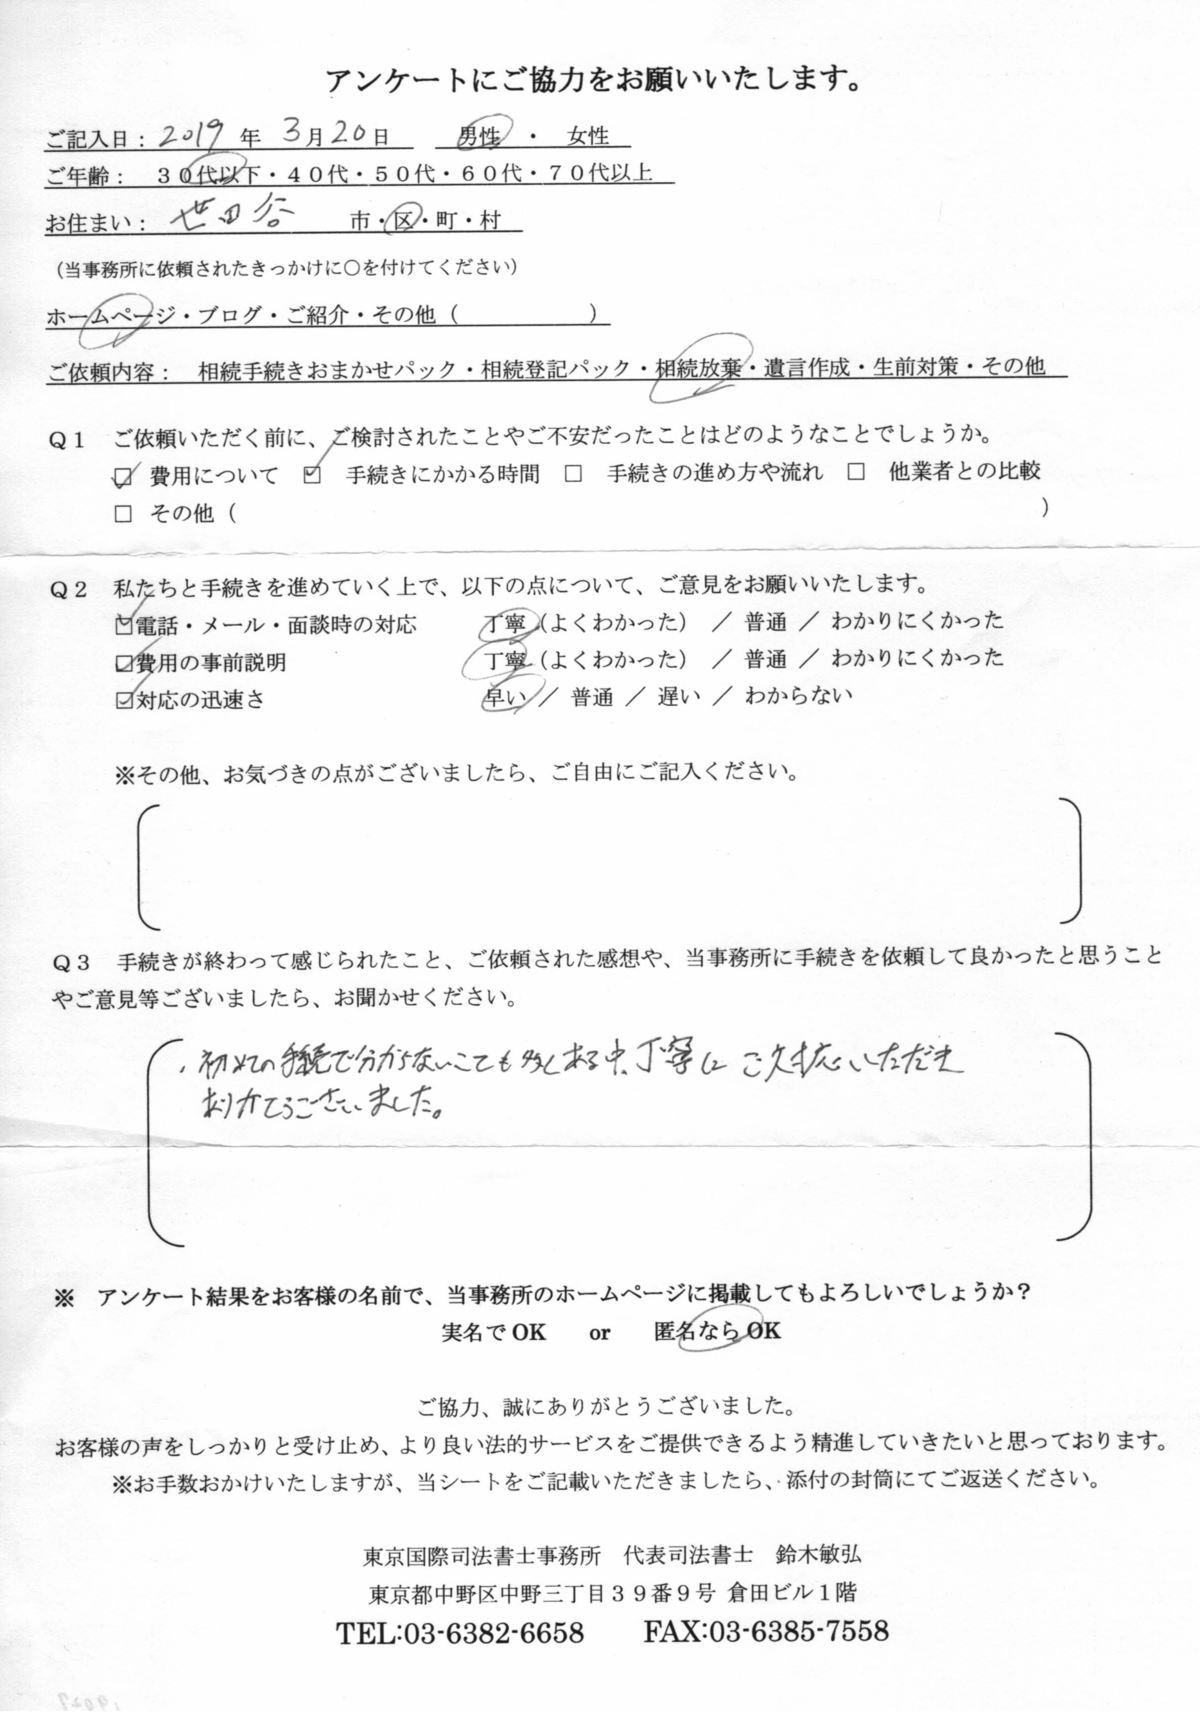 アンケートにご協力をお願いいたします。
ご記入日：2019 年 3月20日　男性 ・ 女性
ご年齢：　３０代以下・４０代・５０代・６０代・７０代以上
お住まい：世田谷　市・区・町・村
（当事務所に依頼されたきっかけに○を付けてください）
ホームページ・ブログ・ご紹介・その他（　　　　　　）
ご依頼内容：　相続手続きおまかせパック・相続登記パック・相続放棄・遺言作成・生前対策・その他
Ｑ１　ご依頼いただく前に、ご検討されたことやご不安だったことはどのようなことでしょうか。
☑ 費用について　☑ 手続きにかかる時間　□ 手続きの進め方や流れ　□ 他業者との比較
□ その他（　　　　　　）
Ｑ２　私たちと手続きを進めていく上で、以下の点について、ご意見をお願いいたします。
☑電話・メール・面談時の対応　丁寧（よくわかった）／ 普通 ／ わかりにくかった
☑費用の事前説明　丁寧（よくわかった）／ 普通 ／ わかりにくかった
☑対応の迅速さ　早い ／ 普通 ／ 遅い ／ わからない
※その他、お気づきの点がございましたら、ご自由にご記入ください。
Ｑ３　手続きが終わって感じられたこと、ご依頼された感想や、当事務所に手続きを依頼して良かったと思うこと
やご意見等ございましたら、お聞かせください。
・初めての手続で分からないことも多くある中、丁寧にご対応いただき
ありがとうございました。
※　アンケート結果をお客様の名前で、当事務所のホームページに掲載してもよろしいでしょうか？
実名でOK　or　匿名ならOK
ご協力、誠にありがとうございました。
お客様の声をしっかりと受け止め、より良い法的サービスをご提供できるよう精進していきたいと思っております。
※お手数おかけいたしますが、当シートをご記載いただきましたら、添付の封筒にてご返送ください。
東京国際司法書士事務所　代表司法書士　鈴木敏弘
東京都中野区中野三丁目３９番９号 倉田ビル１階
TEL:03-6382-6658　FAX:03-6385-7558